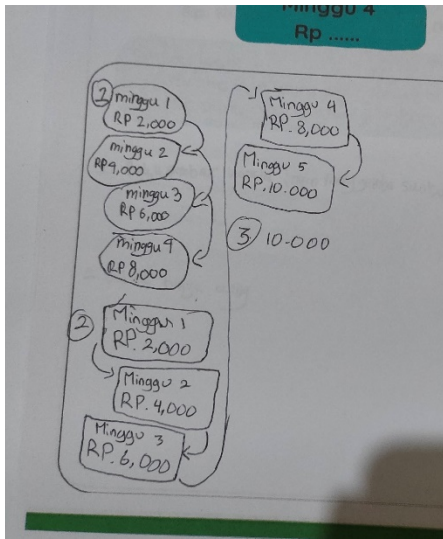 Minggu 4
Rp ......
1 minggu 1
RP 2,000
minggu 2
RP 4,000
minggu 3
RP 6,000
minggu 4
RP 8,000
2 Minggu 1
RP. 2,000
Minggu 2
RP. 4,000
Minggu 3
RP. 6,000
Minggu 4
RP. 8,000
Minggu 5
RP. 10.000
3 10-000